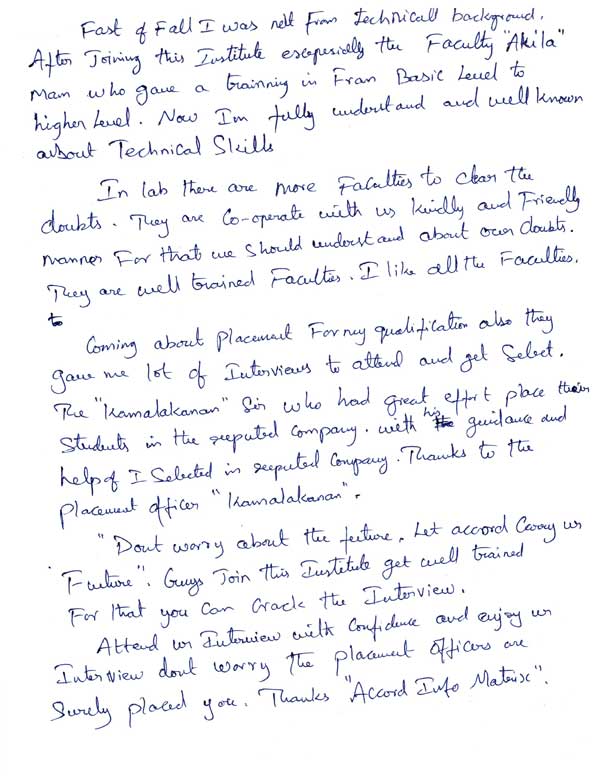 Fast of Fall I was not From technicall background.
After Joining this Institute escepesially the Faculty "Akila"
Mam who gave a trainnig in From Basic Level to
higher Level. Now Im fully understand and well known
about Technical Skills
In lab there are more Faculties to clear the
doubts. They are Co-operate with us kindly and Friendly
manner For that we should understand about own doubts.
They are well trained Faculties. I like all the Faculties.
to
Coming about placement For my qualification also they
gave me lot of Interviews to attend and get Select.
The "Kamalakanan" Sir who had great effort place their
Students in the reeputed company. with his guidance and
help of I Selected in reeputed Company. Thanks to the
placement officer "Kamalakanan".
"Dont worry about the feuture. Let accord Carry ur
Fueture". Guys Join this Institute get well trained
For that you can crack the Interview.
Attend ur Interview with Confidence and enjoy ur
Interview dont worry the placement officers are
Surely placed you. Thanks "Accord Info Matrix".